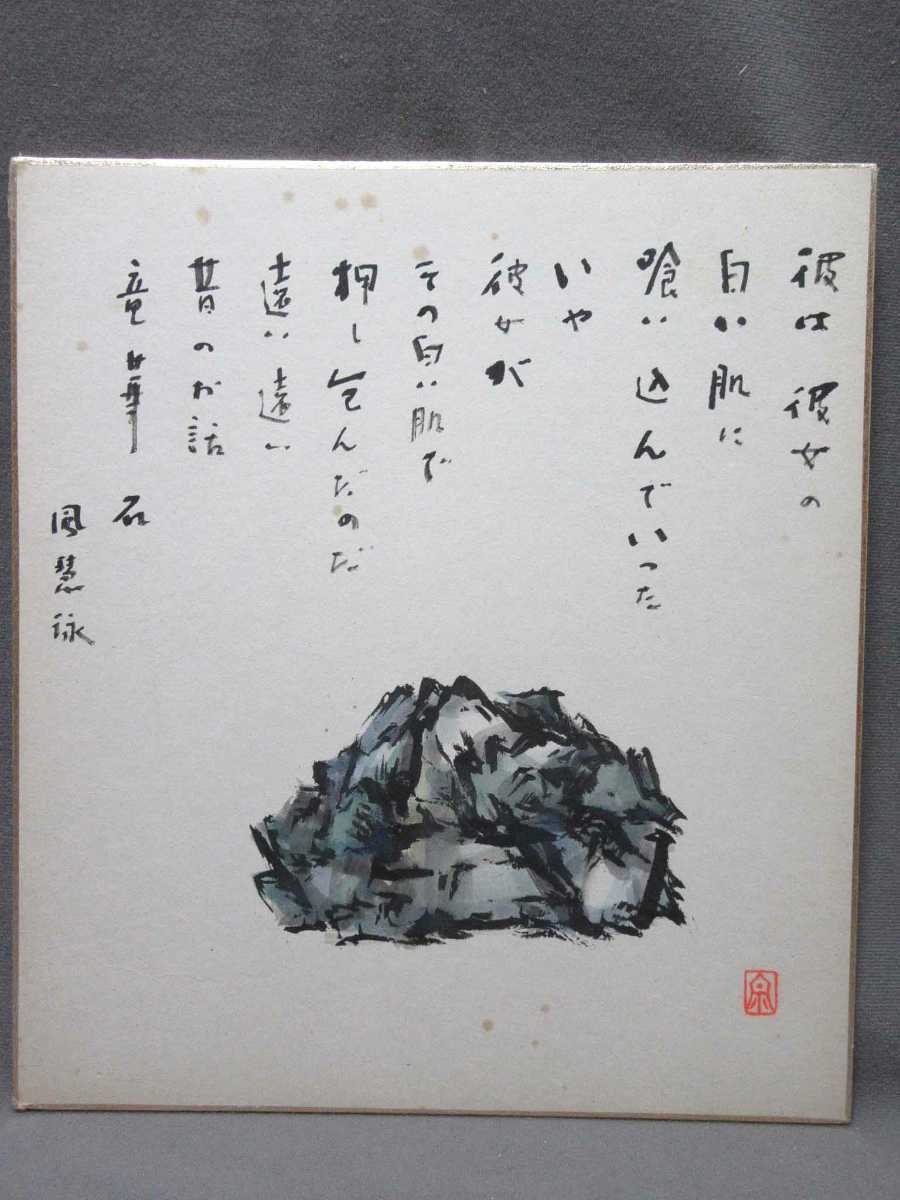 彼は 彼女の
白い肌に
喰い込んでいった
いや
彼女が
その白い肌で
押し包んだのだ
遠い遠い
昔のお話
竜華石
風慧詠